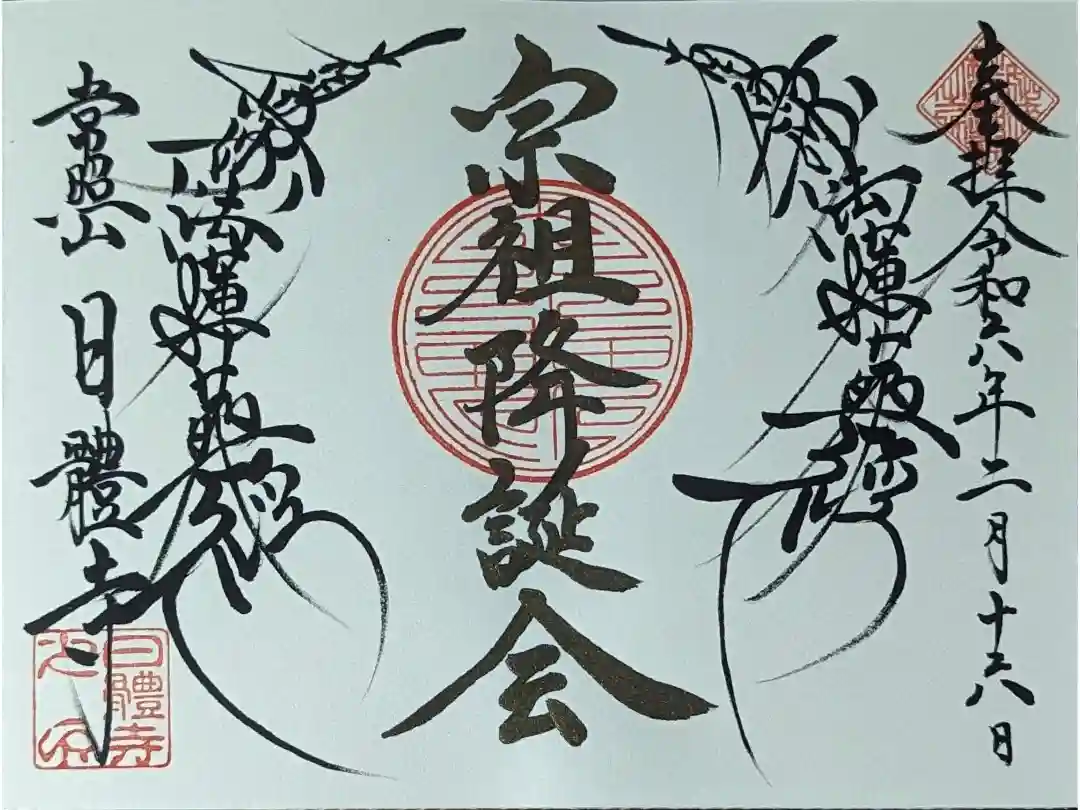 奉拝 令和六年二月十六日
南無妙法蓮華経
宗祖降誕会
南無妙法蓮華経
常照山 日體寺
日體寺之印